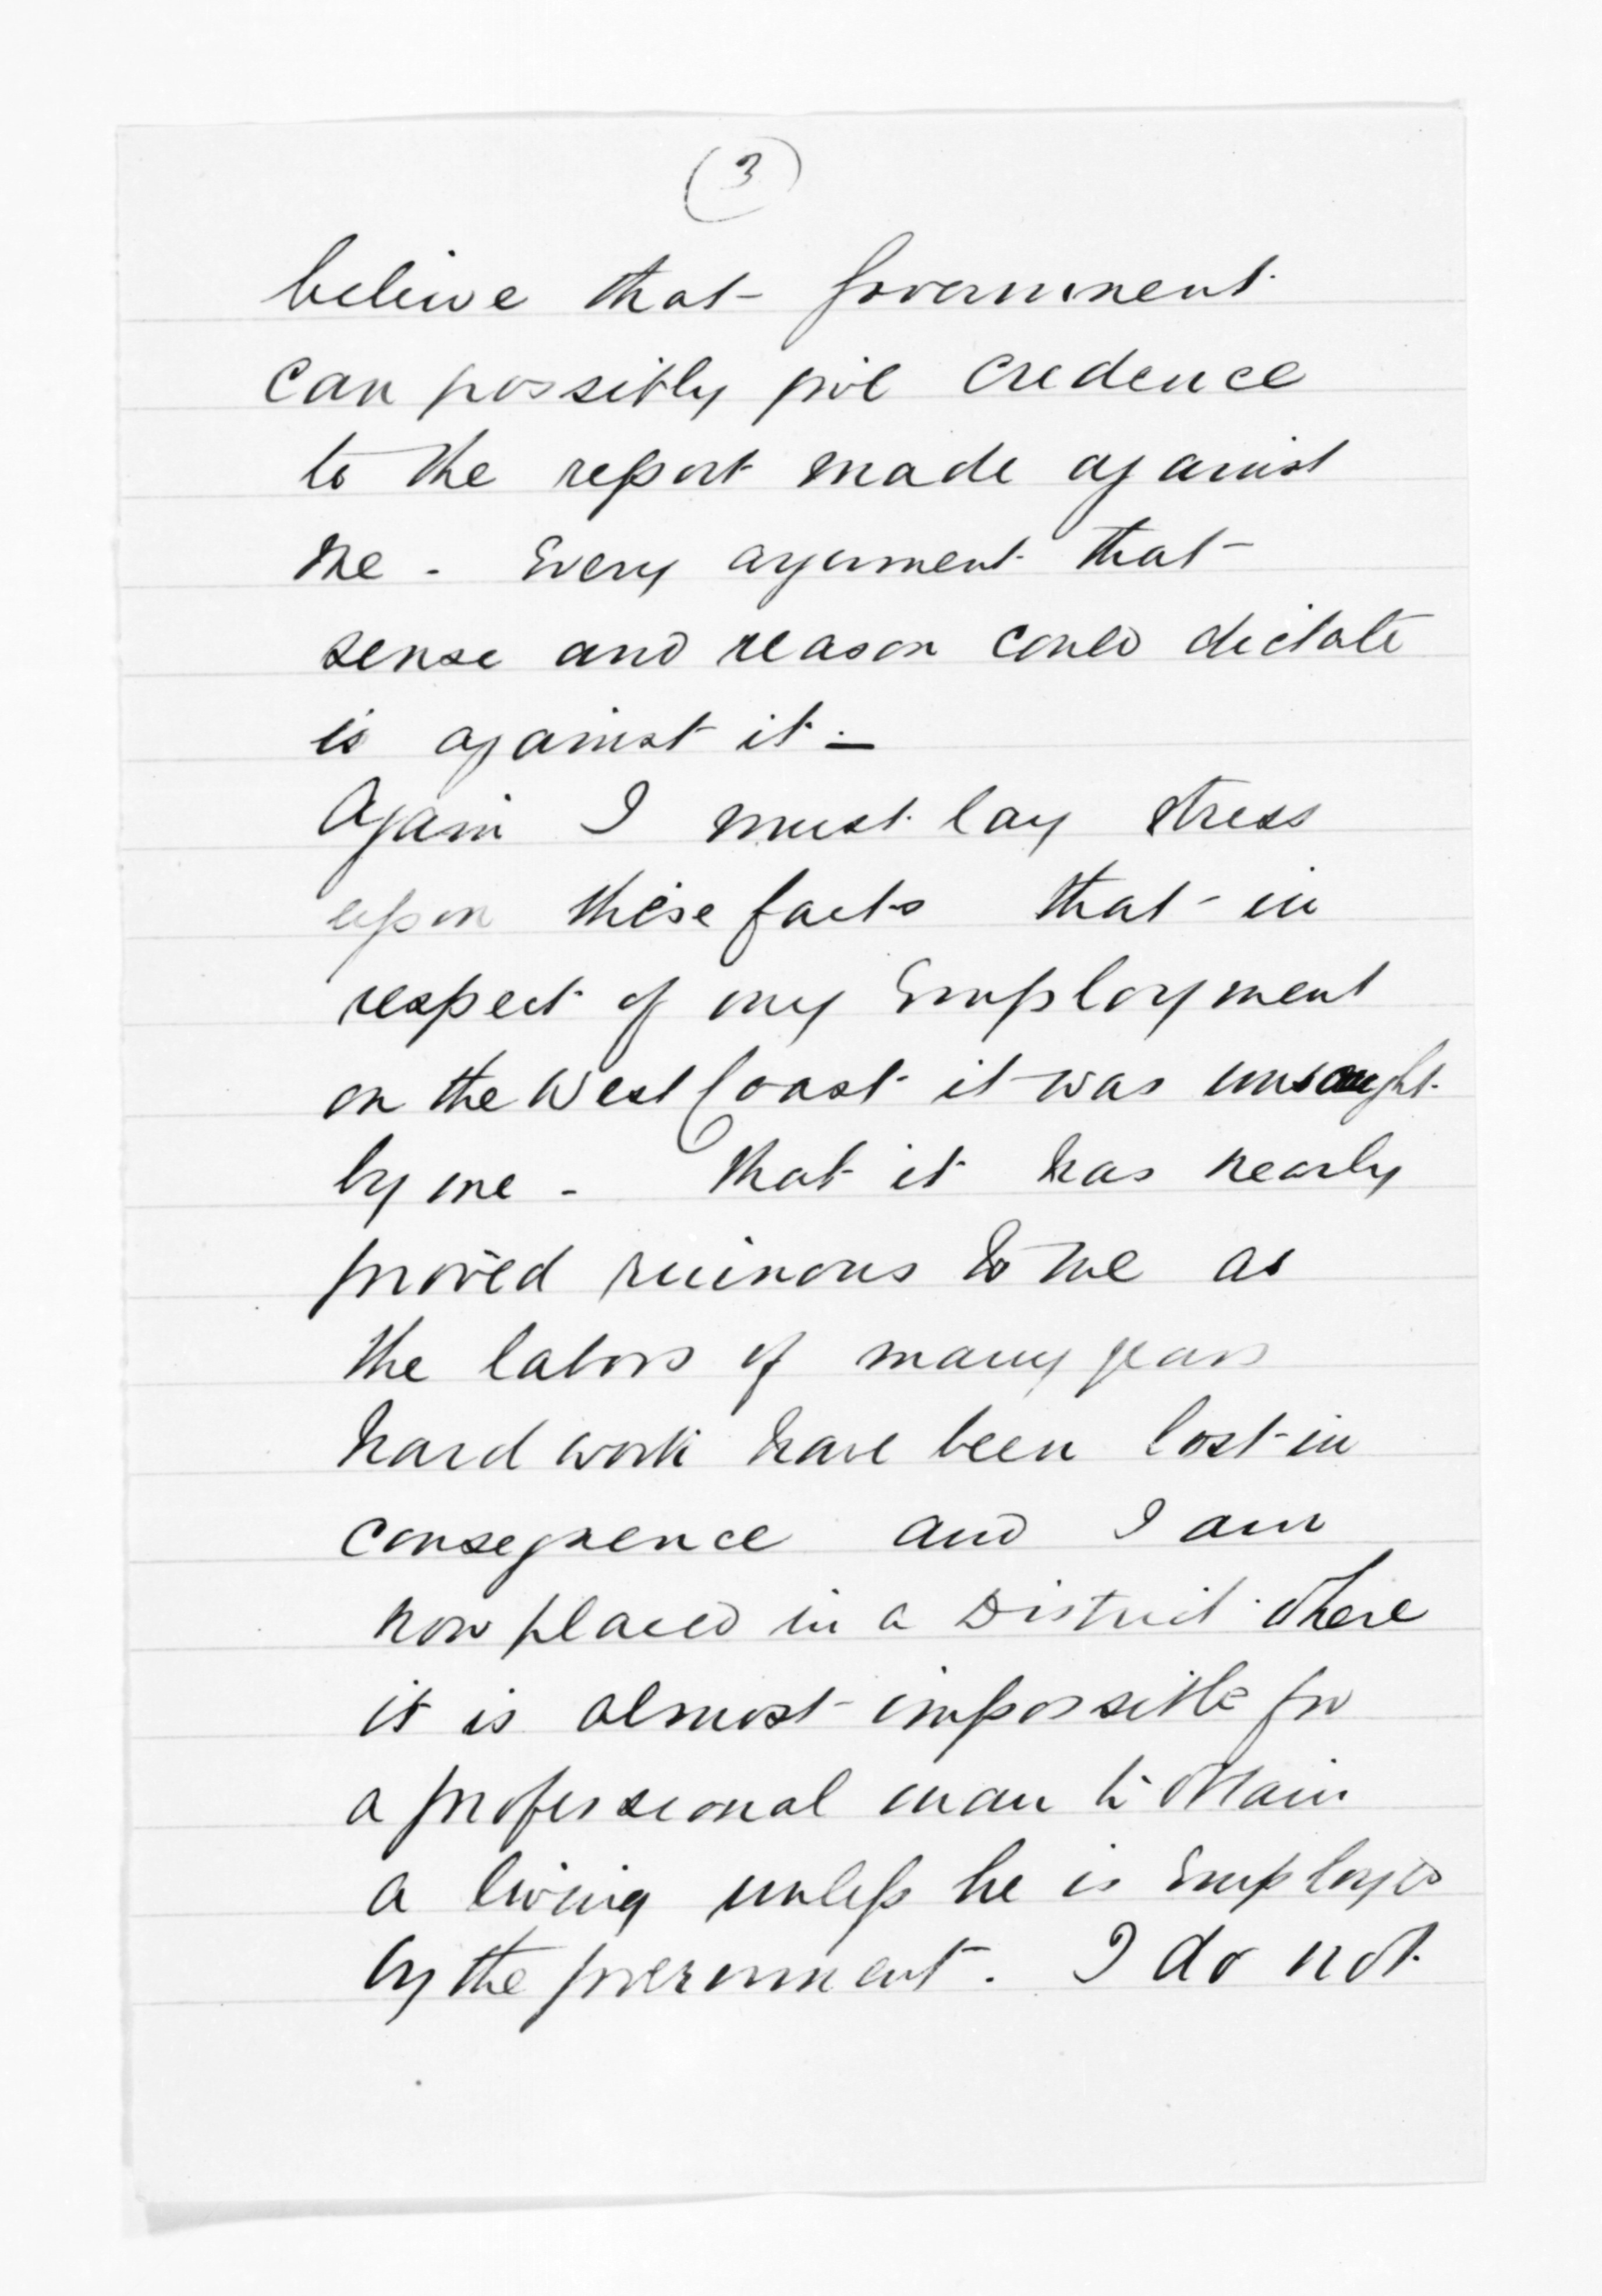 (3)
believe that government
can possibly give credence
to the report made against
me - Every argument that
sense and reason could dictate
is against it. —
Again I must lay stress
upon these facts that in
respect of my Employment
on the West Coast it was unsought
by me - That it has nearly
proved ruinous to me as
the labors of many years
hard work have been lost in
consequence and I am
now placed in a District where
it is almost impossible for
a professional man to obtain
a living unless he is Employed
by the government. I do not